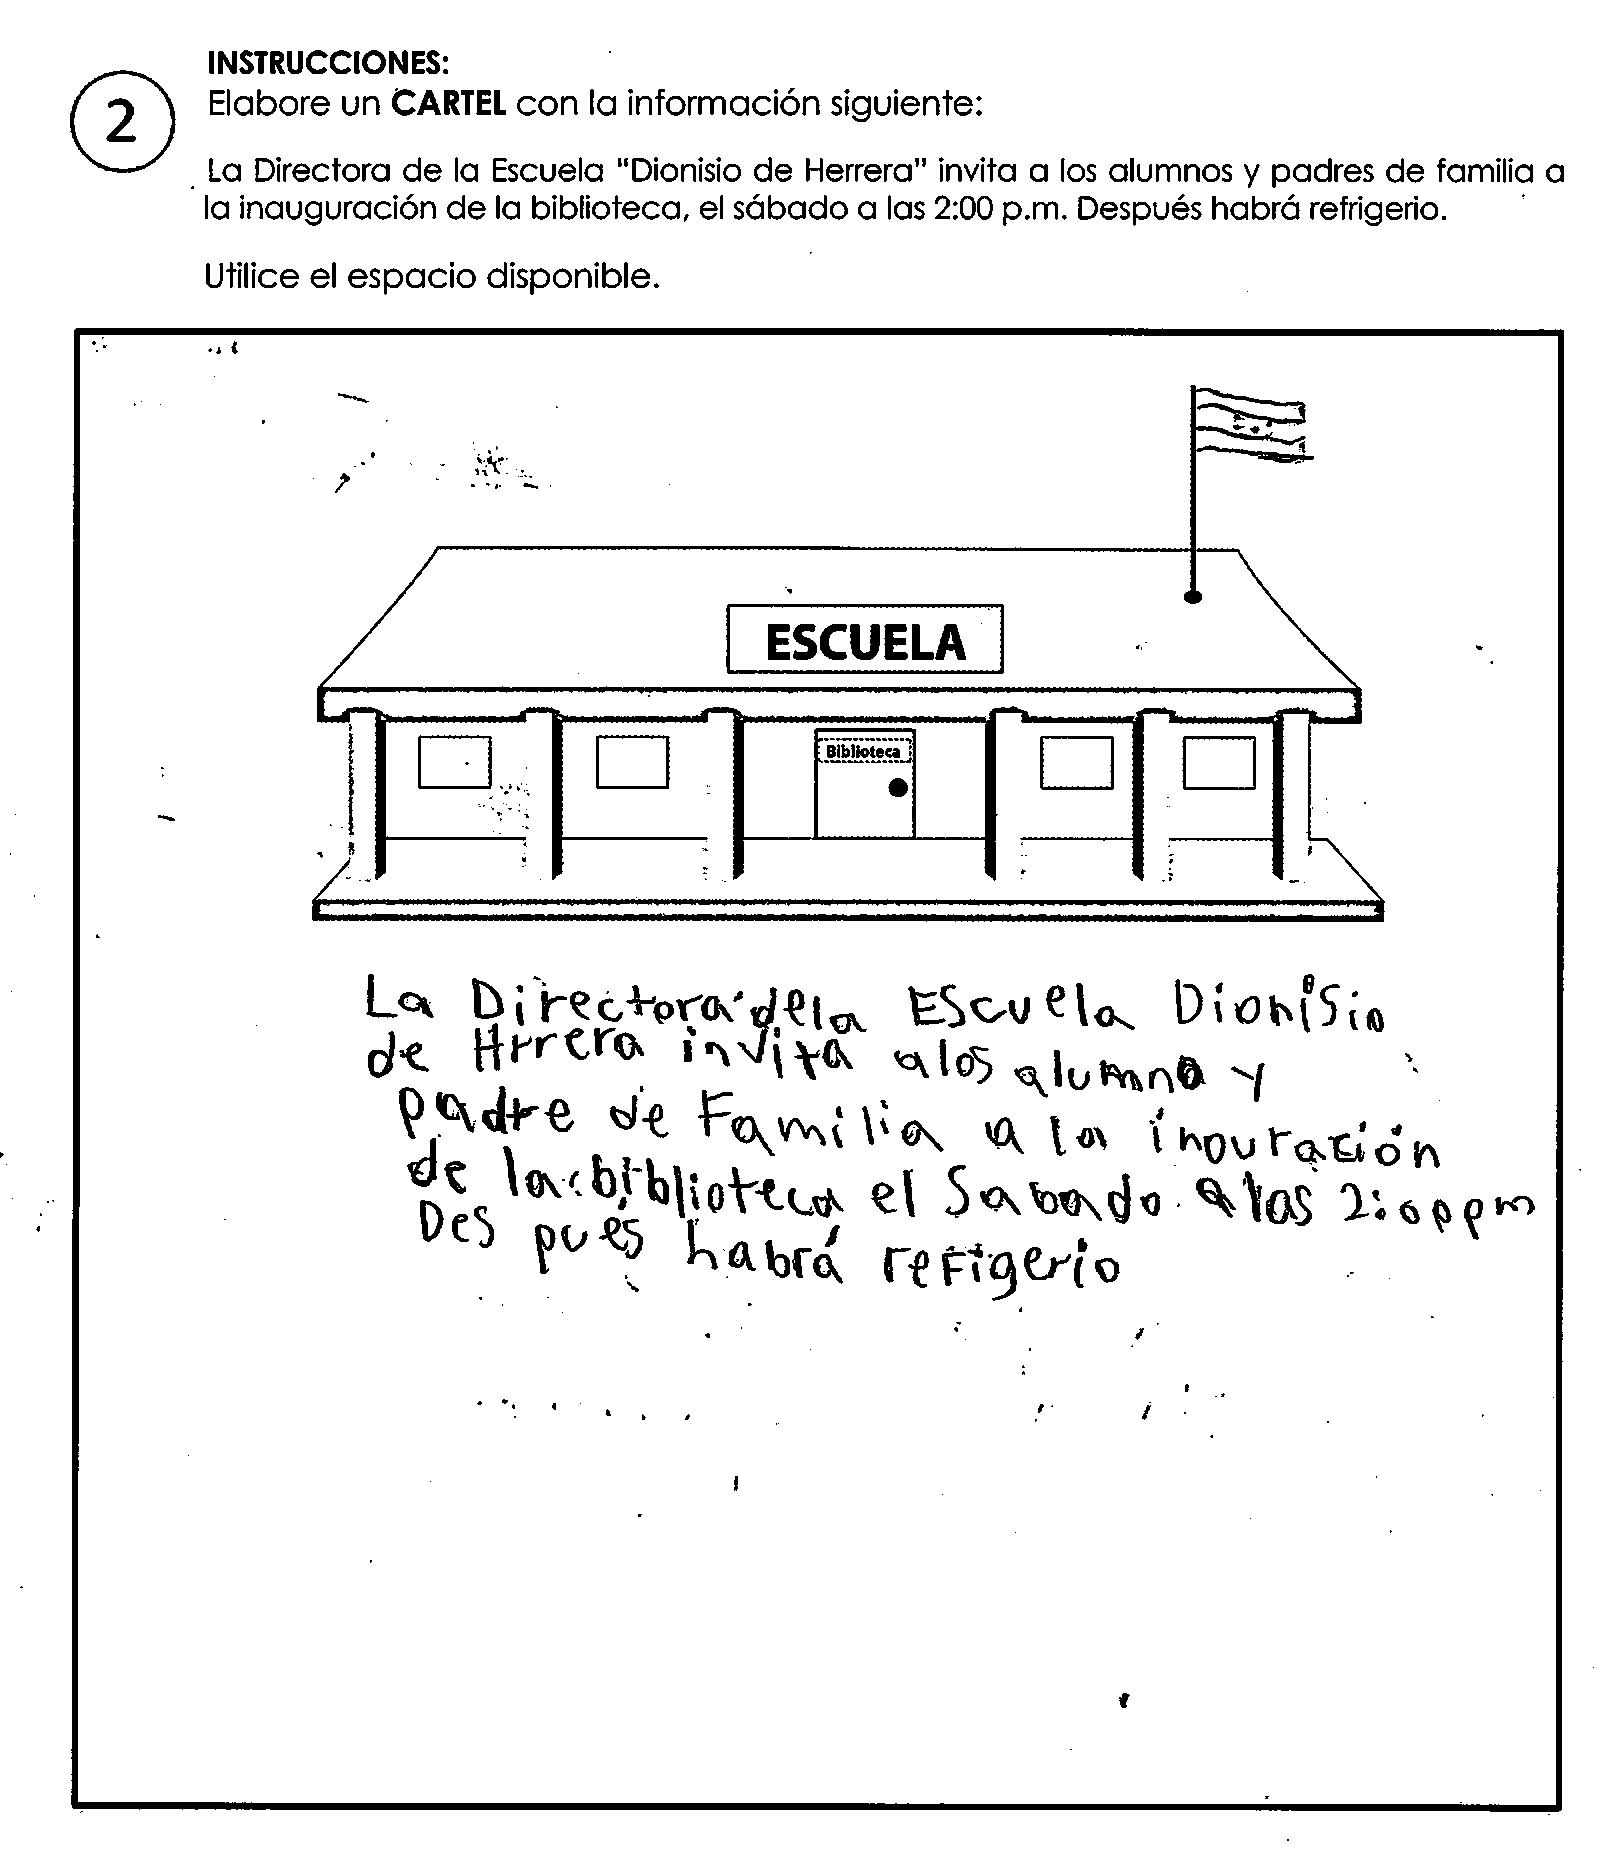 INSTRUCCIONES:
2
Elabore un CARTEL con la información siguiente:
La Directora de la Escuela "Dionisio de Herrera" invita a los alumnos y padres de familia a
la inauguración de la biblioteca, el sábado a las 2:00 p.m. Después habrá refrigerio.
Utilice el espacio disponible.
ESCUELA
Biblioteca
La Directora dela Escuela Dionisio
de Hrrera invita alos alumno y
padre de Familia a la inouración
de la biblioteca el Sabado a las 2:oppm
Des pués habrá refigerio